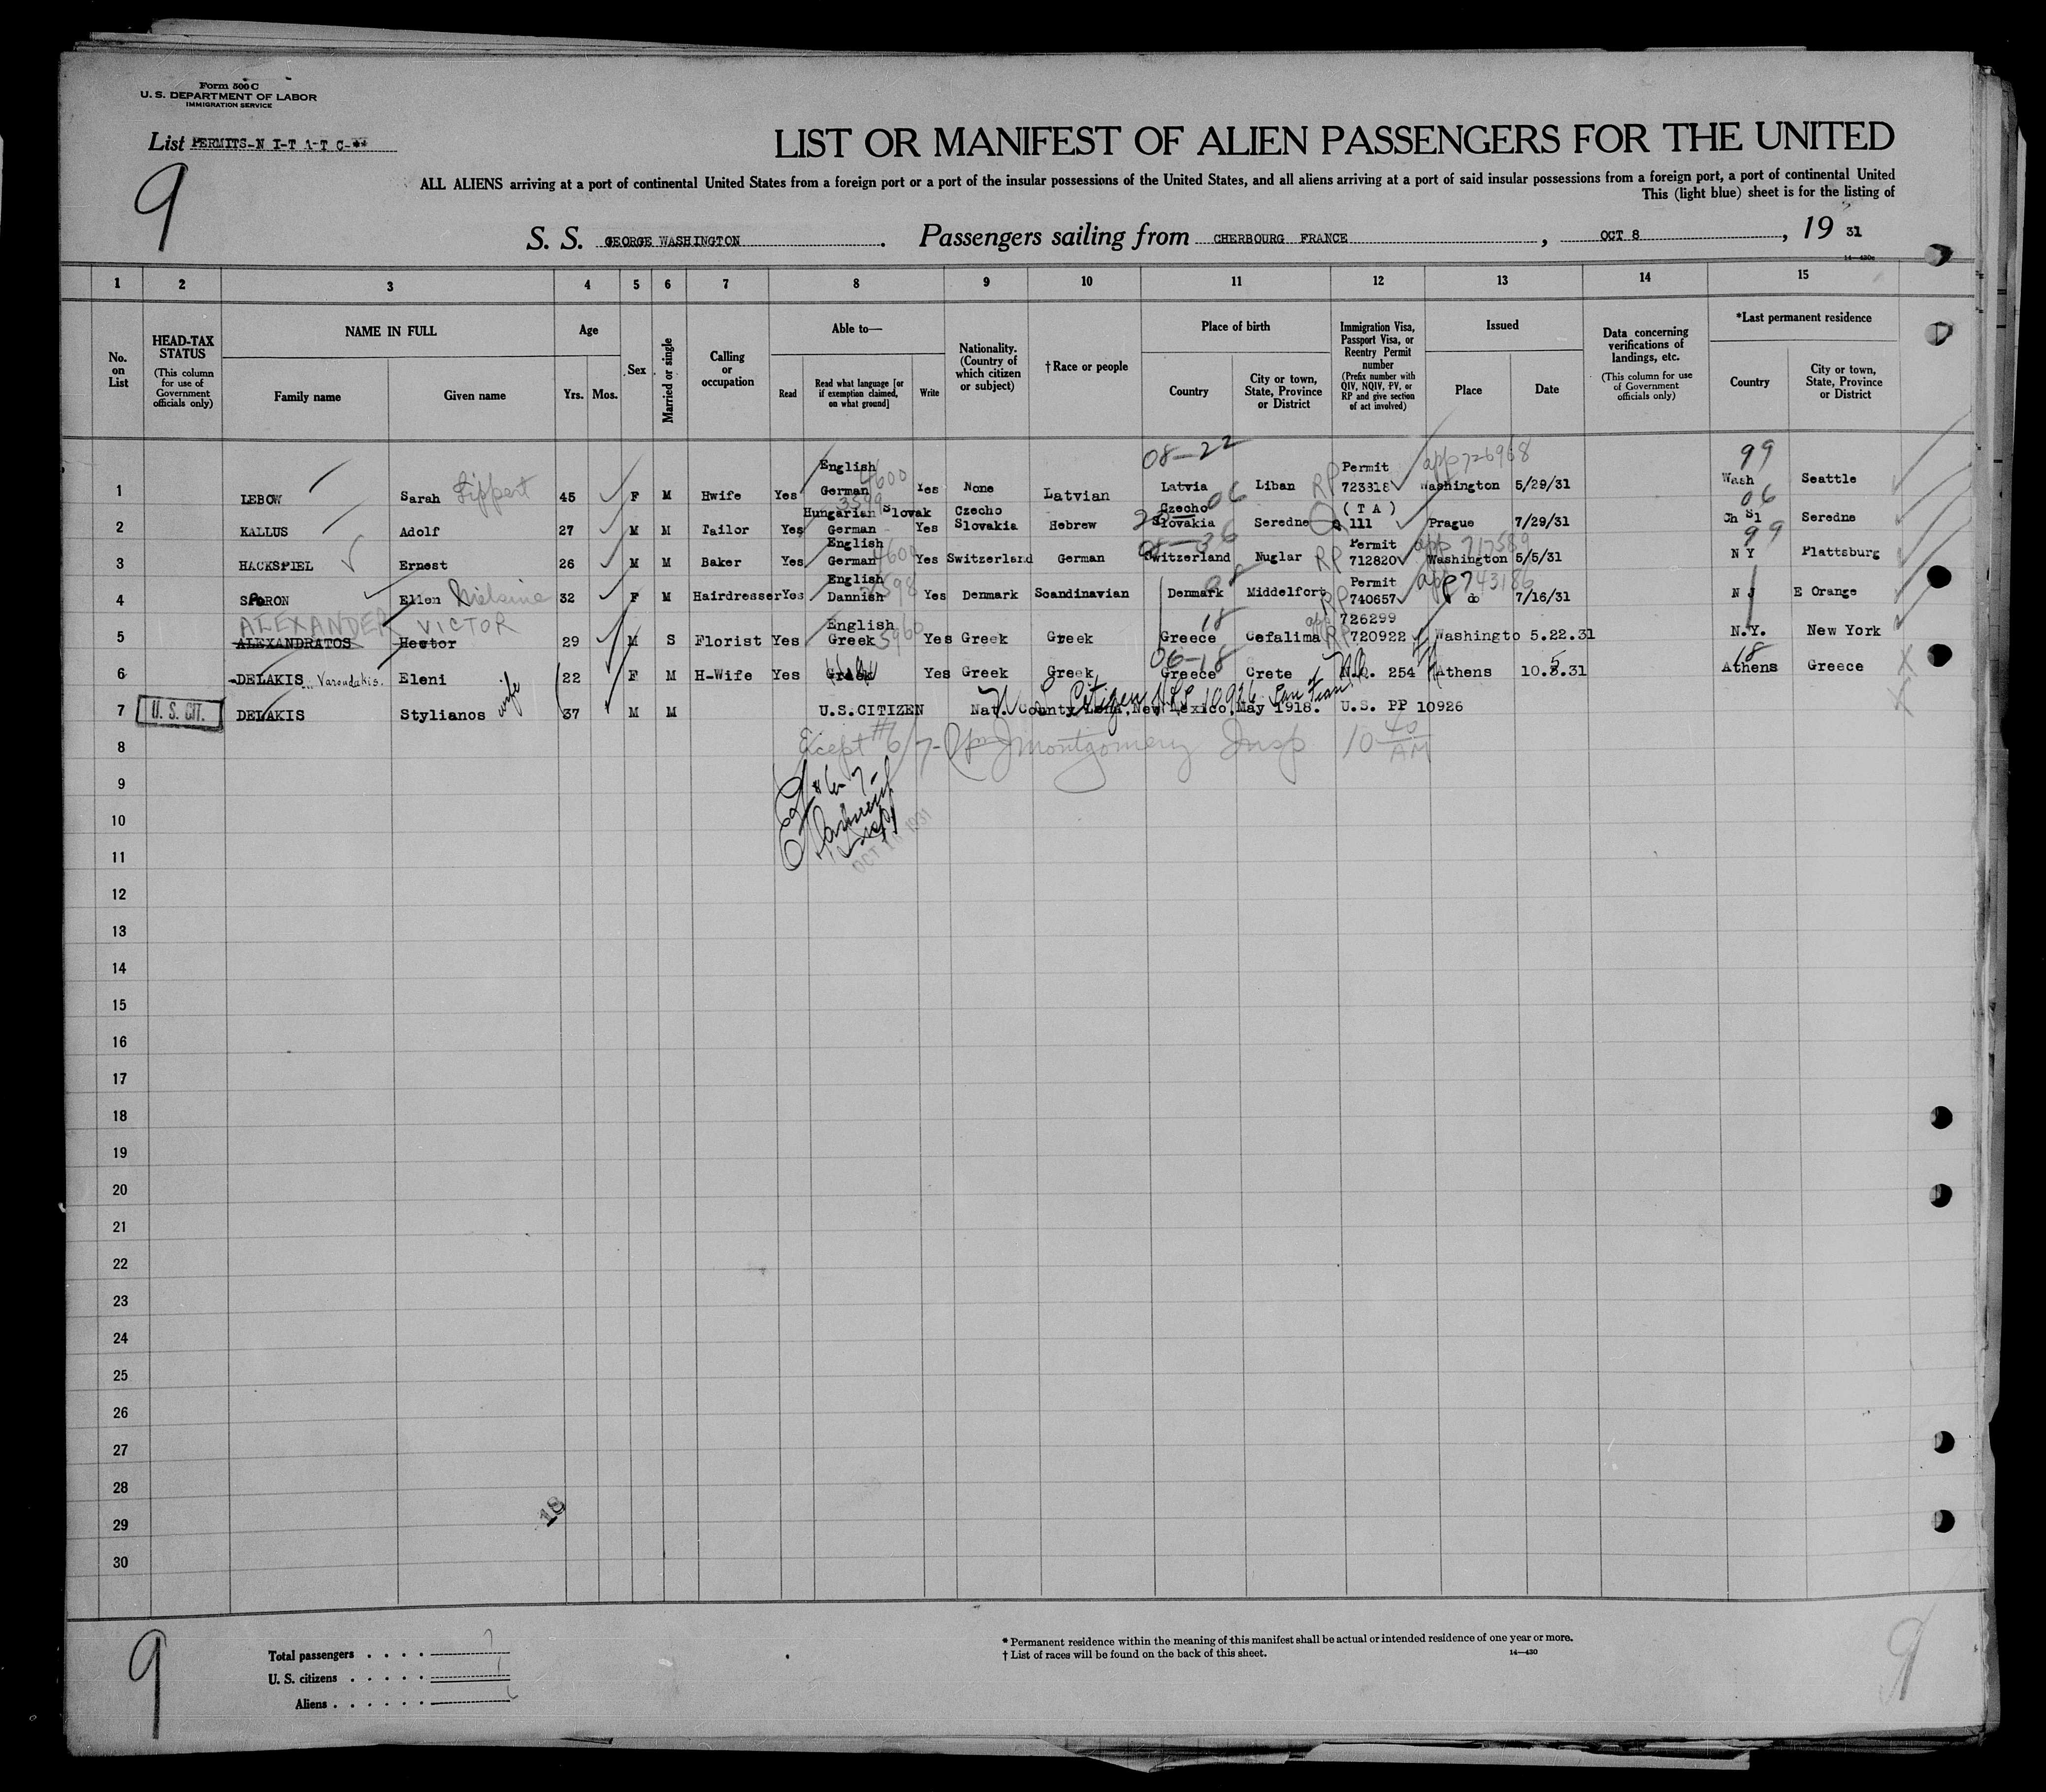 Form 500 C
U. S. DEPARTMENT OF LABOR
IMMIGRATION SERVICE
List PERMITS-N I-T A-T C-**
LIST OR MANIFEST OF ALIEN PASSENGERS FOR THE UNITED
9
ALL ALIENS arriving at a port of continental United States from a foreign port or a port of the insular possessions of the United States, and all aliens arriving at a port of said insular possessions from a foreign port, a port of continental United
This (light blue) sheet is for the listing of
S. S. GEORGE WASHINGTON. Passengers sailing from CHERBOURG FRANCE, OCT 8, 19 31
14-430c
1 2 3 4 5 6 7 8 9 10 11 12 13 14 15
No. on List
HEAD-TAX STATUS (This column for use of Government officials only)
NAME IN FULL
Family name Given name
Age
Yrs. Mos.
Sex
Married or single
Calling or occupation
Able to—
Read Read what language [or if exemption claimed, on what ground] Write
Nationality. (Country of which citizen or subject)
†Race or people
Place of birth
Country City or town, State, Province or District
Immigration Visa, Passport Visa, or Reentry Permit number (Prefix number with QIV, NQIV, PV, or RP and give section of act involved)
Issued
Place Date
Data concerning verifications of landings, etc. (This column for use of Government officials only)
*Last permanent residence
Country City or town, State, Province or District
08-22 app 726968 99
English 4600 Permit
1 LEBOW Sarah Lippert 45 F M Hwife Yes German Yes None Latvian Latvia Liban RP 723318 Washington 5/29/31 Wash Seattle
3599 06 06
Hungarian Slovak Czecho Czecho (T A)
2 KALLUS Adolf 27 M M Tailor Yes German Yes Slovakia Hebrew Slovakia Seredne Q 111 Prague 7/29/31 Ch Sl Seredne
English 4600 08-36 Permit app 717589 99
3 HACKSPIEL Ernest 26 M M Baker Yes German Yes Switzerland German Switzerland Nuglar RP 712820 Washington 5/5/31 N Y Plattsburg
English Permit app 743186
4 SPORON Ellen 32 F M Hairdresser Yes Dannish Yes Denmark Scandinavian Denmark Middelfort RP 740657 do 7/16/31 N J E Orange
ALEXANDER VICTOR English 18 app 726299
5 ALEXANDRATOS Hector 29 M S Florist Yes Greek 3960 Yes Greek Greek Greece Cefalima RP 720922 Washingto 5.22.31 N.Y. New York
06-18 18
6 DELAKIS Varoudakis. Eleni wife 22 F M H-Wife Yes Greek Yes Greek Greek Greece Crete N.Q. 254 Athens 10.5.31 Athens Greece
7 U. S. CIT. DELAKIS Stylianos 37 M M U.S.CITIZEN Nat. County Luna, New Mexico, May 1918. U.S. PP 10926
8 Except #6/7 - Montgomery Insp 10 40 AM
9
10
OCT 1931
11
12
13
14
15
16
17
18
19
20
21
22
23
24
25
26
27
28
18
29
30
9
Total passengers . . . . 7
U. S. citizens . . . . . 1
Aliens . . . . . . 6
* Permanent residence within the meaning of this manifest shall be actual or intended residence of one year or more.
† List of races will be found on the back of this sheet.
14-430
9